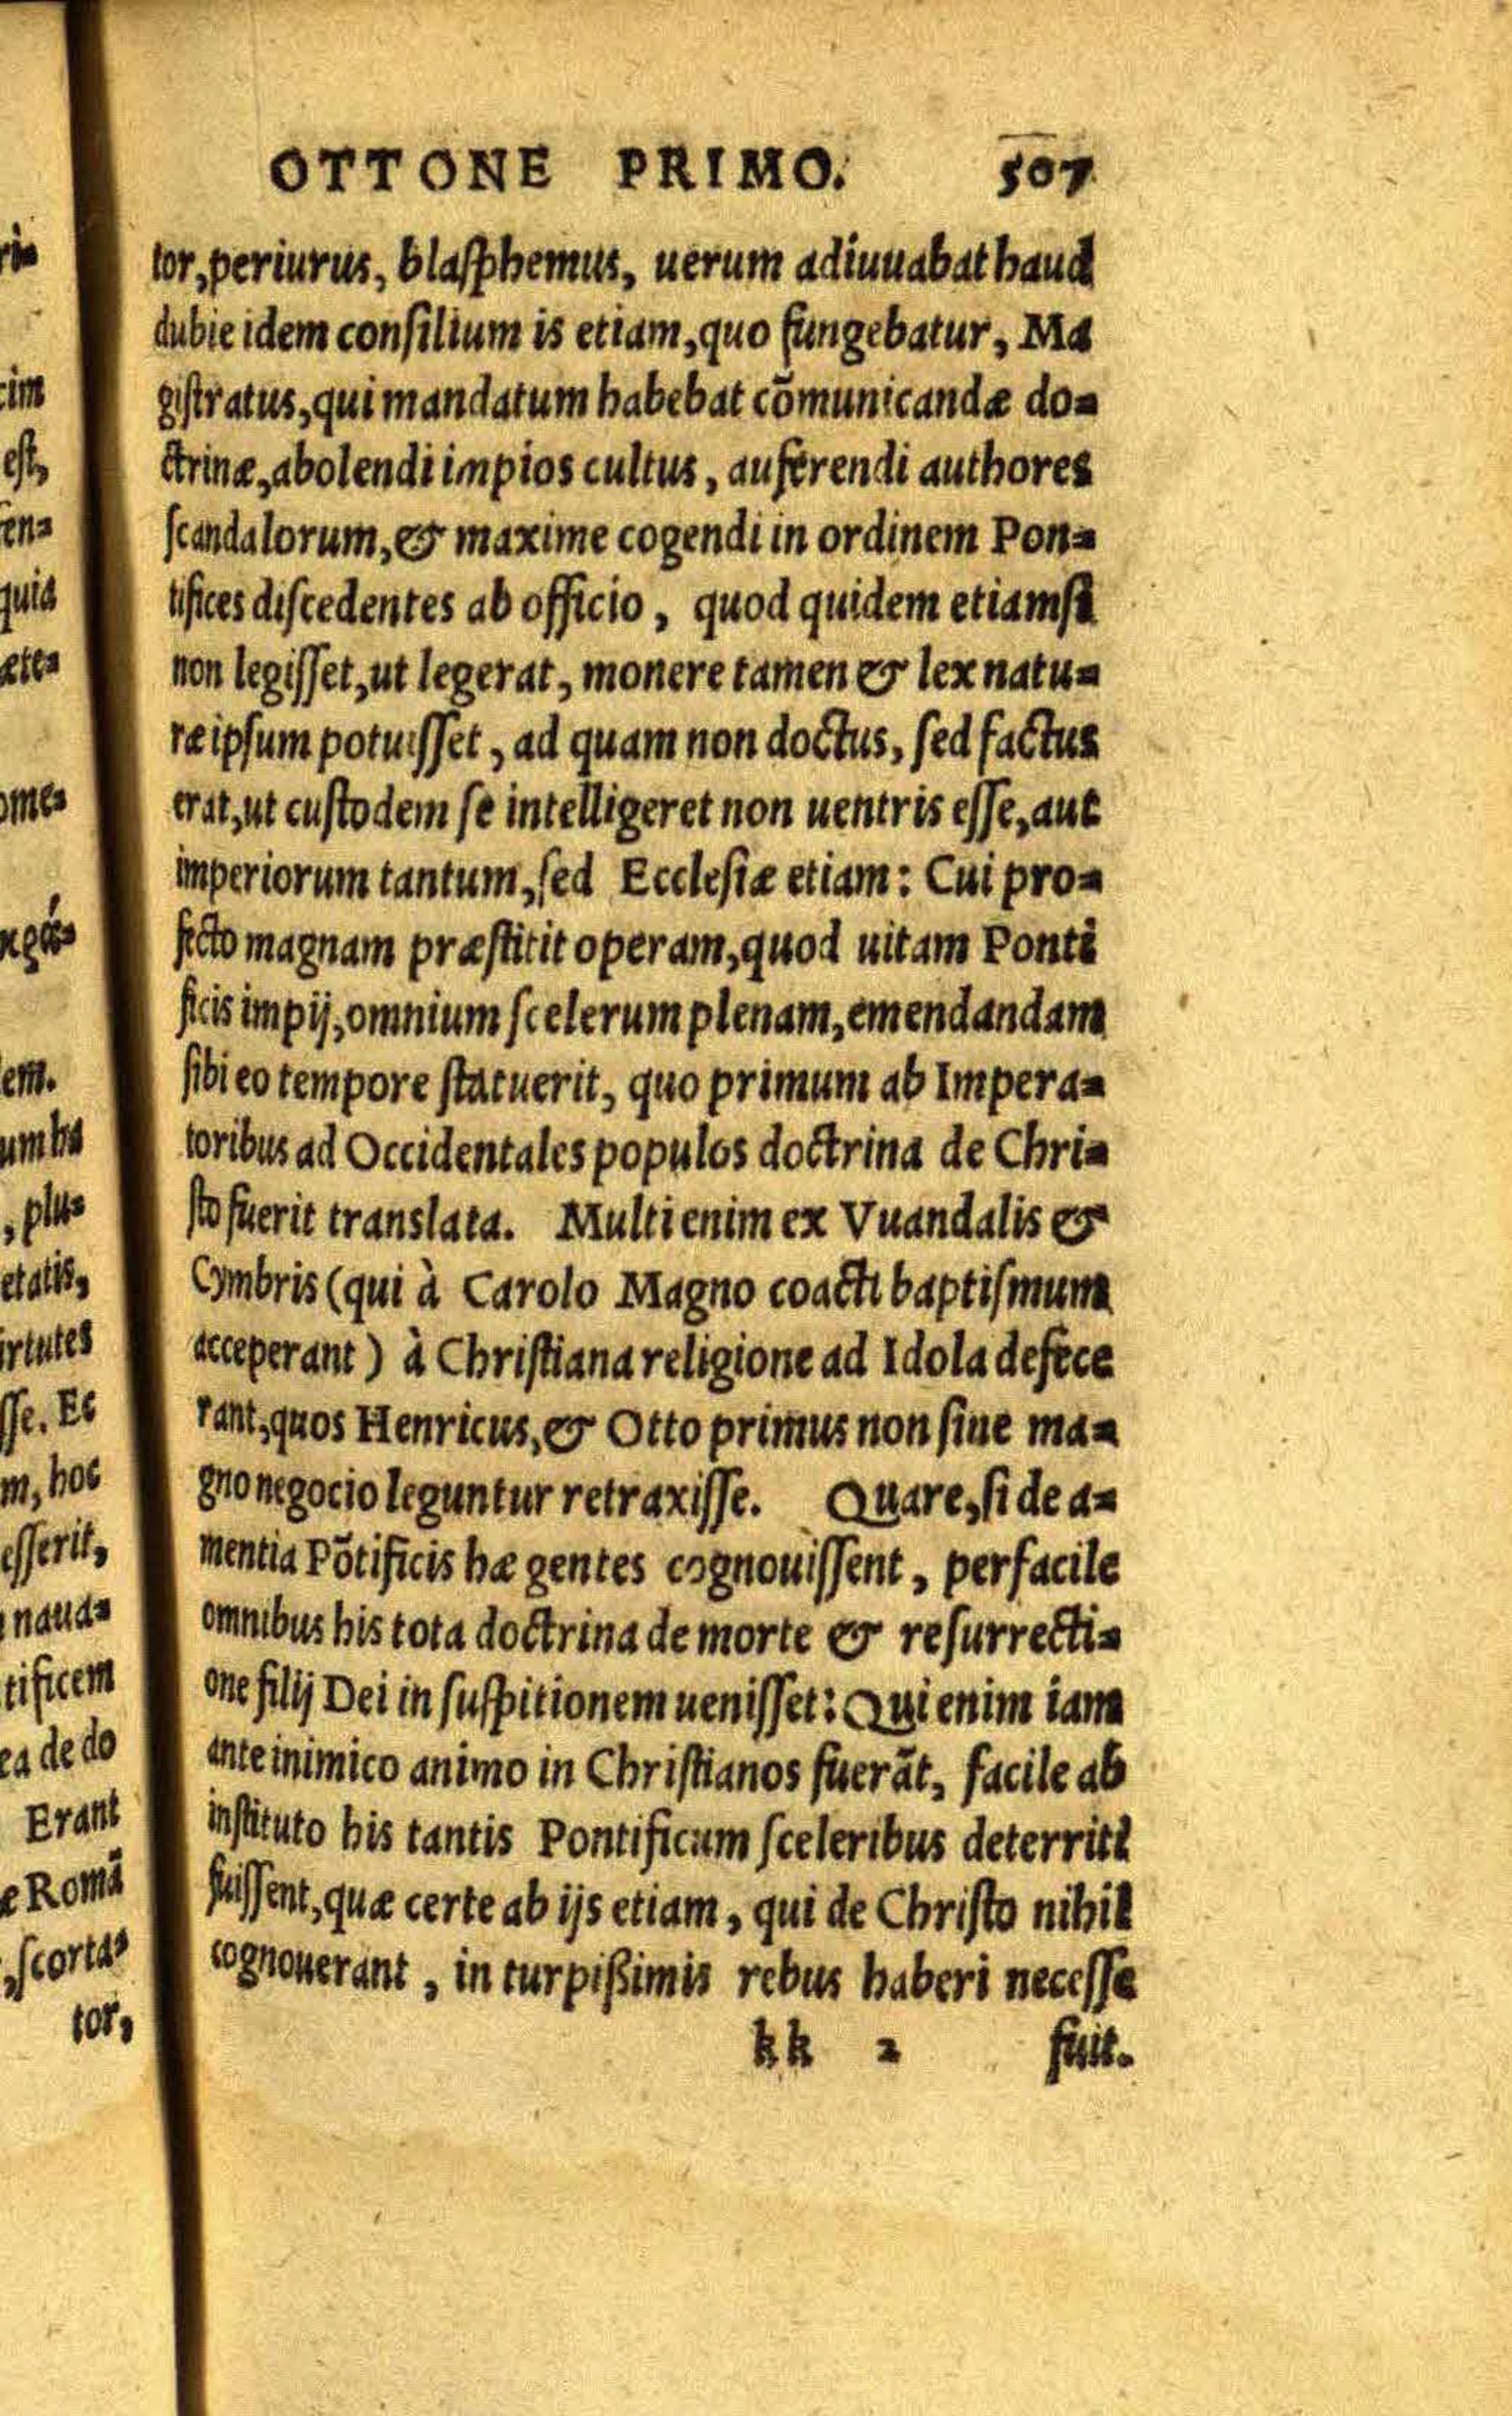 OTTONE PRIMO. 507
tor, periurus, blasphemus, uerum adiuuabat haud
dubie idem consilium is etiam, quo fungebatur, Ma
gistratus, qui mandatum habebat cōmunicandæ do=
ctrinæ, abolendi impios cultus, auferendi authores
scandalorum, & maxime cogendi in ordinem Pon=
tifices discedentes ab officio, quod quidem etiamsi
non legisset, ut legerat, monere tamen & lex natu=
ræ ipsum potuisset, ad quam non doctus, sed factus
erat, ut custodem se intelligeret non uentris esse, aut
imperiorum tantum, sed Ecclesiæ etiam: Cui pro=
fecto magnam præstitit operam, quod uitam Ponti
ficis impij, omnium scelerum plenam, emendandam
sibi eo tempore statuerit, quo primum ab Impera=
toribus ad Occidentales populos doctrina de Chri=
sto fuerit translata. Multi enim ex Vuandalis &
Cymbris (qui à Carolo Magno coacti baptismum
acceperant) à Christiana religione ad Idola defece
rant, quos Henricus, & Otto primus non sine ma=
gno negocio leguntur retraxisse. Quare, si de a=
mentia Pōtificis hæ gentes cognouissent, perfacile
omnibus his tota doctrina de morte & resurrecti=
one filij Dei in suspitionem uenisset: Qui enim iam
ante inimico animo in Christianos fuerāt, facile ab
instituto his tantis Pontificum sceleribus deterriti
fuissent, quæ certe ab ijs etiam, qui de Christo nihil
cognouerant, in turpißimis rebus haberi necesse
kk 2 fuit.
est,
quid
em.
, plu=
etatis,
sse. Et
m, hoc
tificem
ea de do
Erant
e Romā
, scorta=
tor,